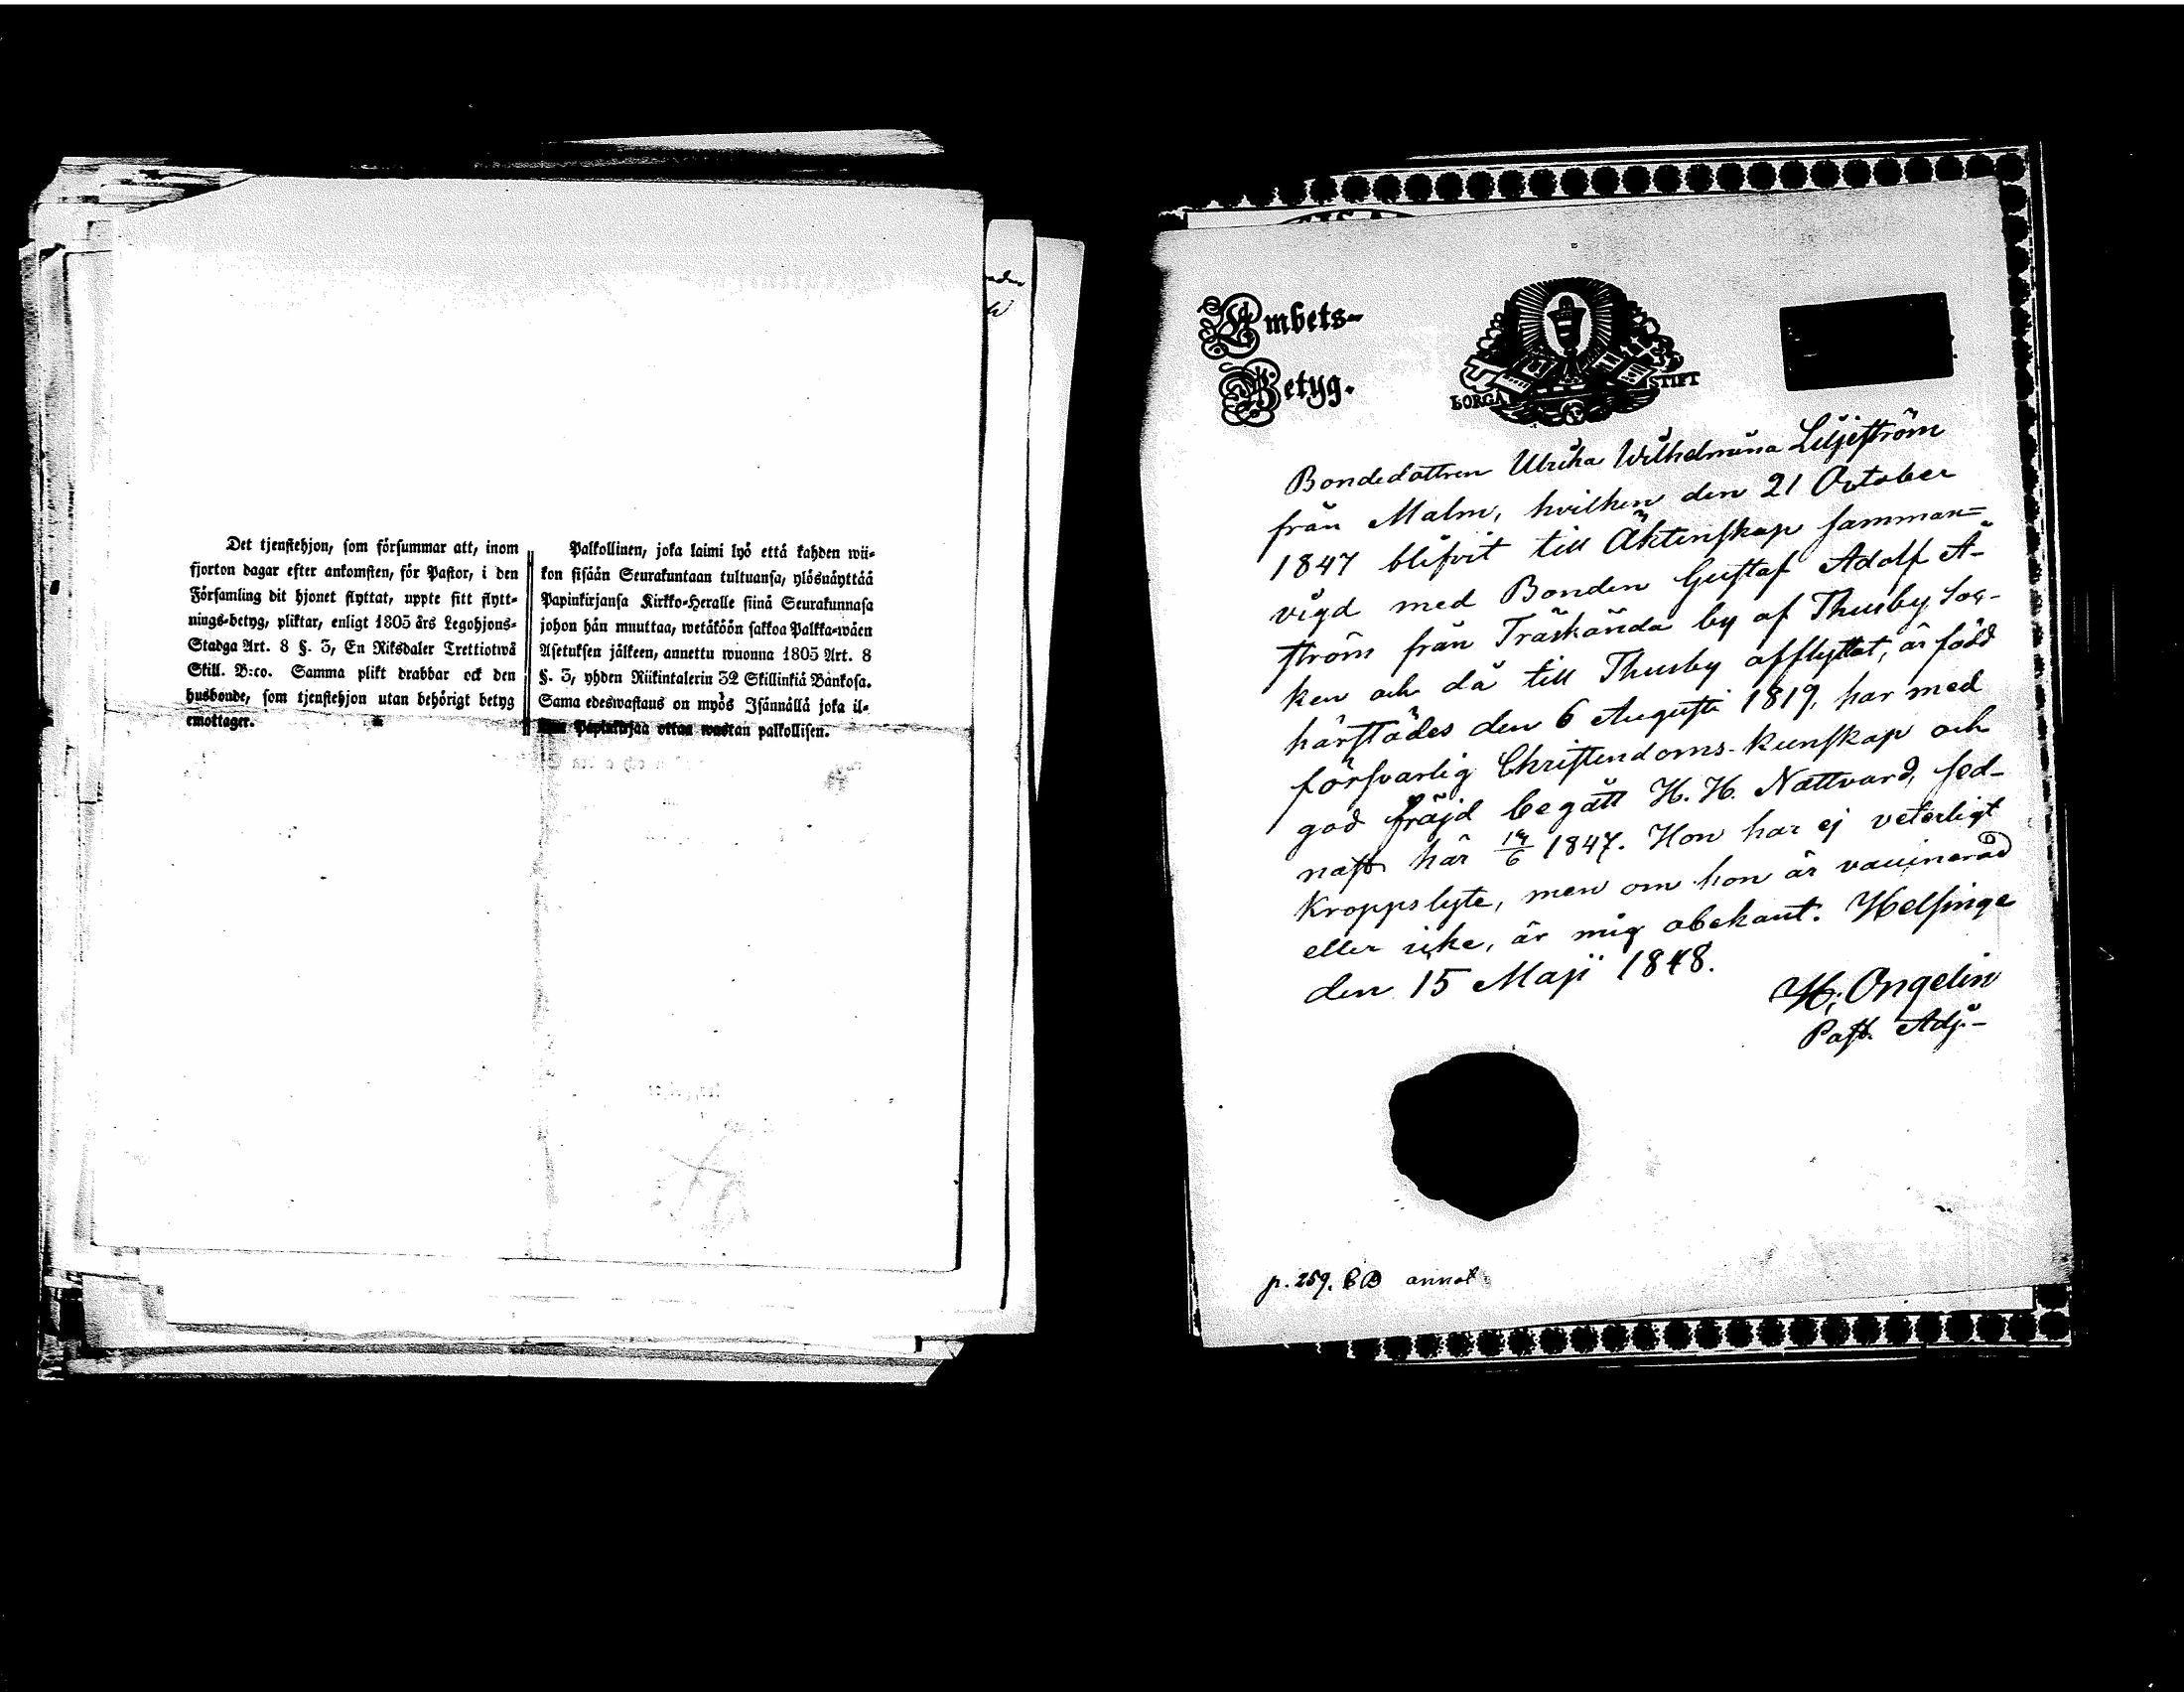 Det tjenstehjon, som försummar att, inom
fjorton dagar efter ankomsten, för Pastor, i den
Församling dit hjonet flyttat, uppte sitt flytt-
nings-betyg, pliktar, enligt 1805 års Legohjons-
Stadga Art. 8 §. 3, En Riksdaler Trettiotwå
Skill. B:co. Samma plikt drabbar ock den
husbonde, som tjenstehjon utan behörigt betyg
emottager.
Palkollinen, joka laimi lyö että kahden wii-
kon sisään Seurakuntaan tultuansa, ylösnäyttää
Papinkirjansa Kirkko-Heralle siinä Seurakunnasa
johon hän muuttaa, wetäköön sakkoa Palkka-wäen
Asetuksen jälkeen, annettu wuonna 1805 Art. 8
§. 3, yhden Riikintalerin 32 Skillinkiä Bankosa.
Sama edeswastaus on myös Isännällä joka il-
Papinkirjaa ottaa wastan palkollisen.
Embets-
Betyg.
BORGÅ STIFT
Bondedottren Ulrika Wilhelmina Liljeström
från Malm, hvilken den 21 October
1847 blifvit till Äktenskap samman=
vigd med Bonden Gustaf Adolf Å-
ström från Träskända by af Thusby Soc-
ken och då till Thusby afflyttat, är född
härstädes den 6 Augusti 1819, har med
försvarlig Christendoms-kunskap och
god fräjd begått H. H. Nattvard, sed-
nast här 1847. Hon har ej veterligt
Kroppslyte, men om hon är vaccinerad
eller icke, är mig obekant. Helsinge
den 15 Maji 1848.
H. Ongelin
Past. Adj.-
p. 259. CB annot